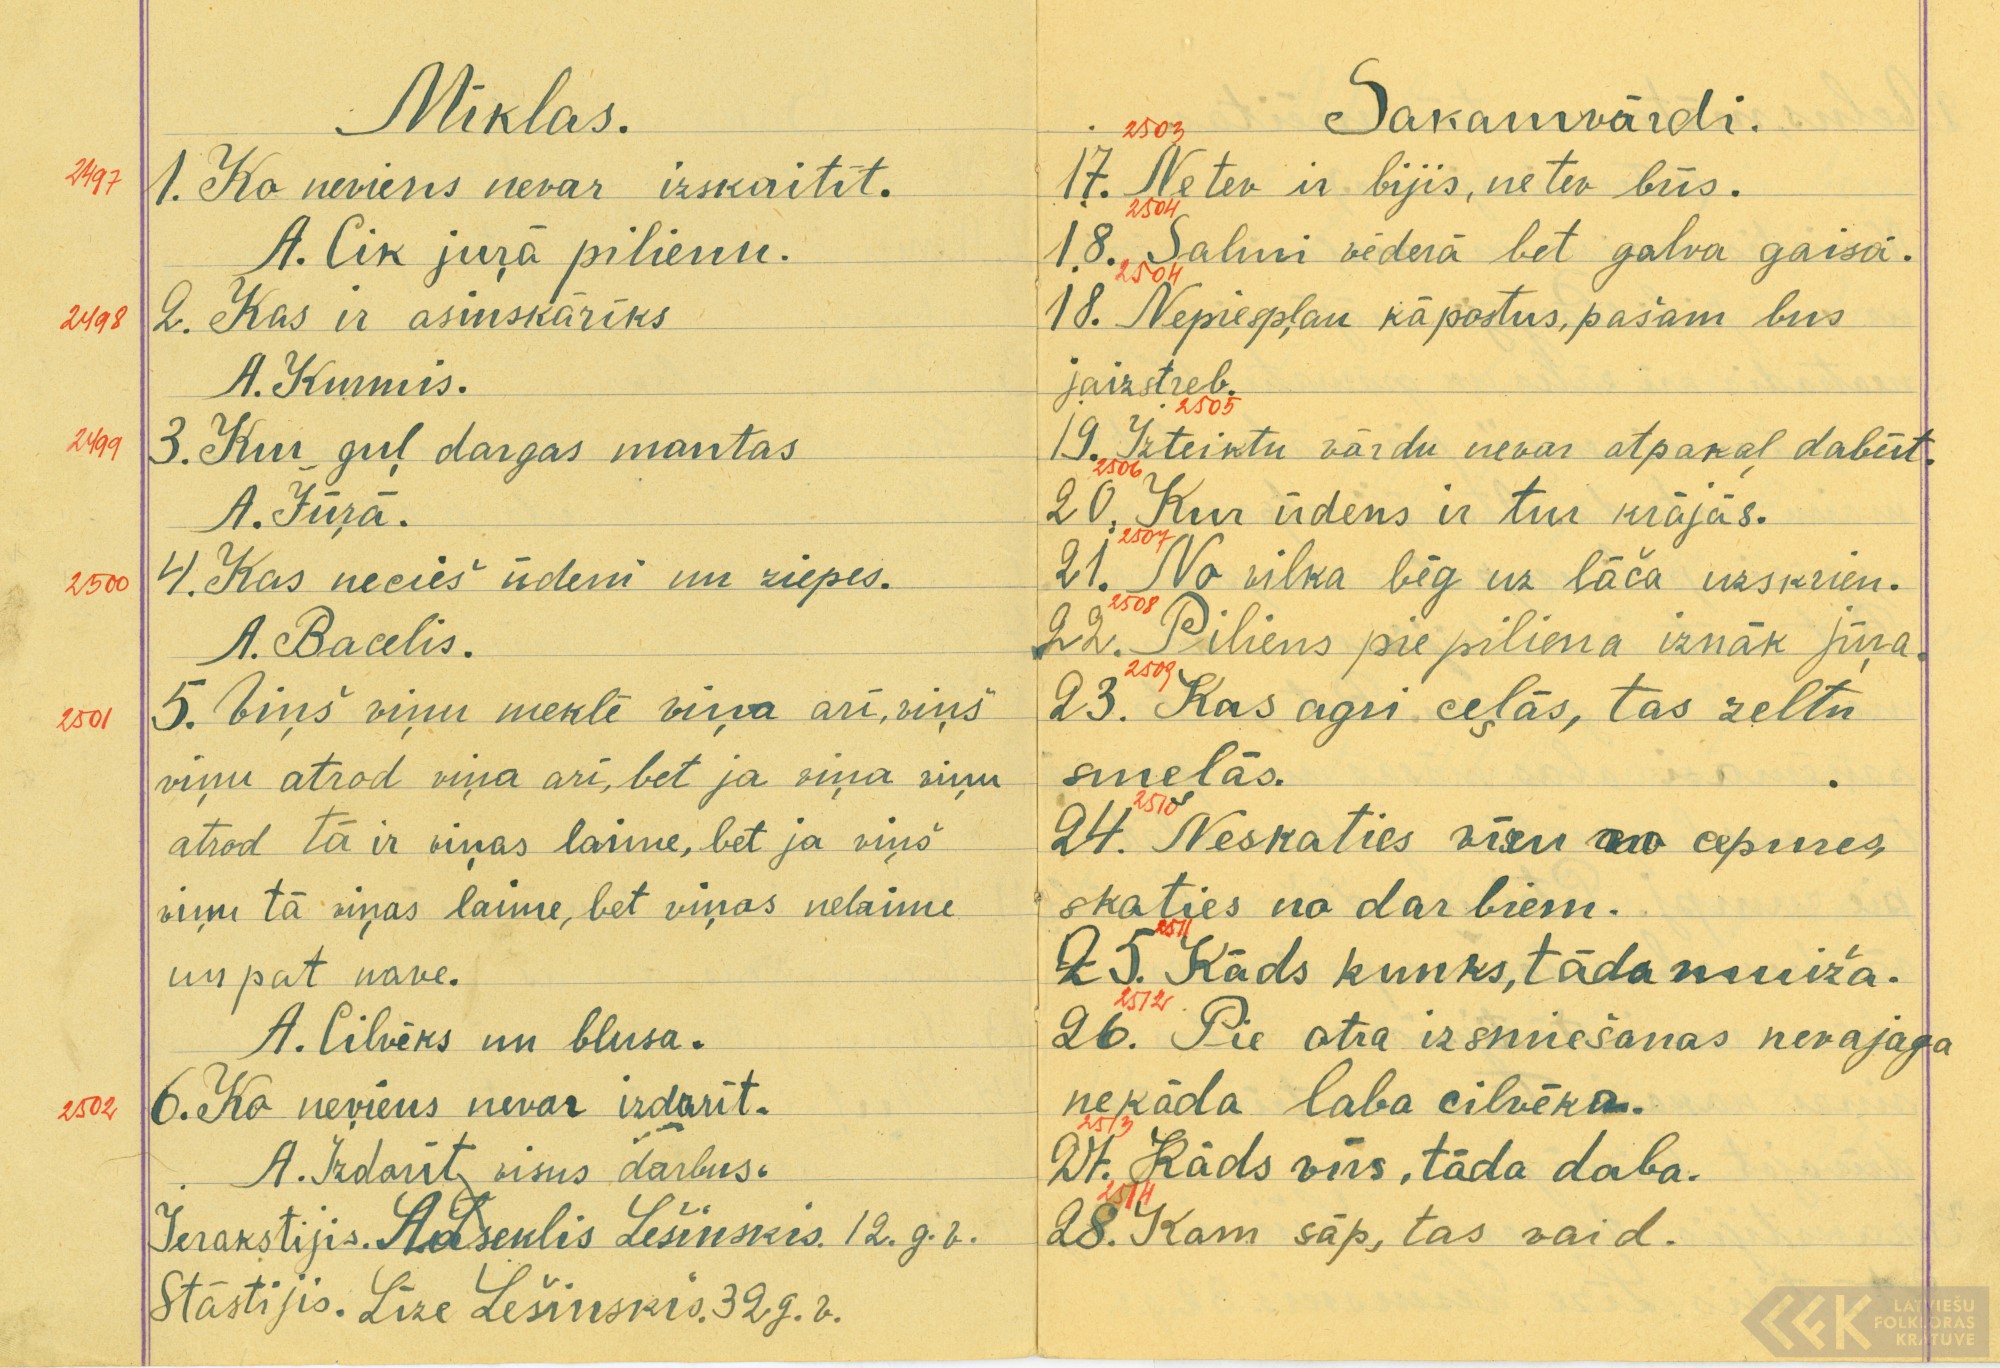 Mīklas.
2497 1. Ko neviens nevar izskaitīt.
A. Cik juŗā pilienu.
2498 2. Kas ir asinskārīks
A. Kurmis.
2499 3. Kur guļ dargas mantas
A. Jūŗā.
2500 4. Kas necieš ūdeni un ziepes.
A. Bacelis.
2501 5. Viņš viņu meklē viņa arī, viņš
viņu atrod viņa arī, bet ja viņa viņu
atrod tā ir viņas laime, bet ja viņš
viņu tā viņas laime, bet viņas nelaime
un pat nave.
A. Cilvēks un blusa.
2502 6. Ko neviens nevar izdarīt.
A. Izdarīt visus darbus.
Ierakstijis. Ādseklis Lešinskis. 12. g. v.
Stāstijis. Līze Lešinskis. 32 g. v.
Sakamvārdi.
2503
17. Ne tev ir bijis, ne tev būs.
2504
18. Salmi vēderā bet galva gaisā.
2504
18. Nepiespļau kāpostus, pašam bus
jaizstreb.
2505
19. Izteiktu vārdu nevar atpakaļ dabūt.
2506
20. Kur ūdens ir tur krājās.
2507
21. No vilka bēg uz lāča uzskrien.
2508
22. Piliens pie piliena iznāk jūŗa.
2509
23. Kas agri ceļās, tas zeltu
smelās.
2510
24. Neskaties vīru no cepures,
skaties no darbiem.
2511
25. Kāds kunks, tāda muiža.
2512
26. Pie otra izsmiešanas nevajaga
nekāda laba cilvēka.
2513
27. Kāds vīrs, tāda daba.
2514
28. Kam sāp, tas vaid.
LATVIEŠU
FOLKLORAS
KRĀTUVE